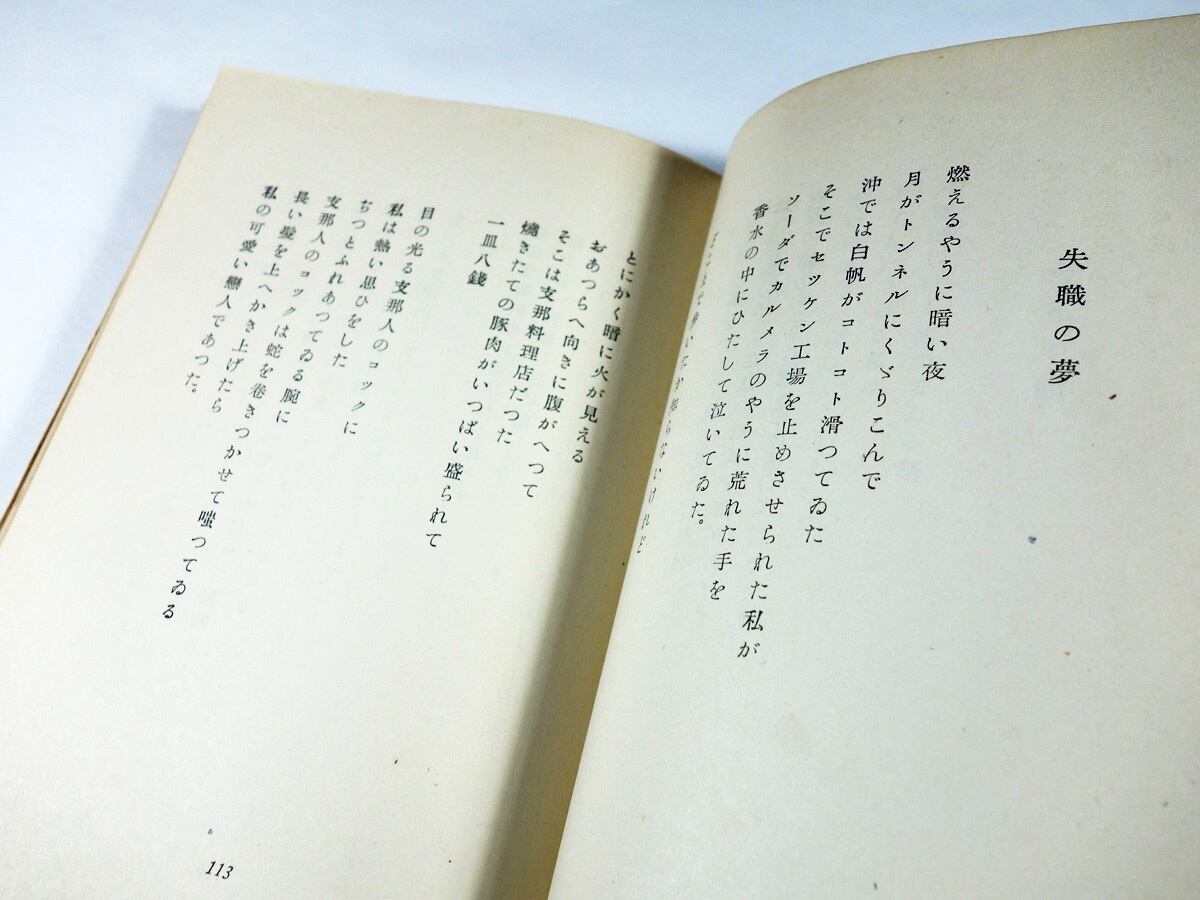 失職の夢
燃えるやうに暗い夜
月がトンネルにくゞりこんで
沖では白帆がコトコト滑つてゐた
そこでセツケン工場を止めさせられた私が
ソーダでカルメラのやうに荒れた手を
香水の中にひたして泣いてゐた。
知らないけれど
とにかく暗に火が見える
おあつらへ向きに腹がへつて
そこは支那料理店だつた
燒きたての豚肉がいつぱい盛られて
一皿八錢
目の光る支那人のコツクに
私は熱い思ひをした
ぢつとふれあつてゐる腕に
支那人のコツクは蛇を卷きつかせて嗤つてゐる
長い髮を上へかき上げたら
私の可愛い戀人であつた。
113